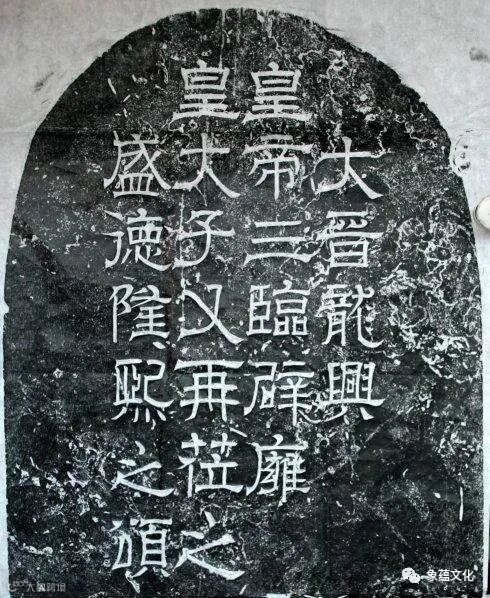 大晉龍興
皇帝三臨辟廱
皇大子又再莅之
盛德隆熙之頌
象蕴文化